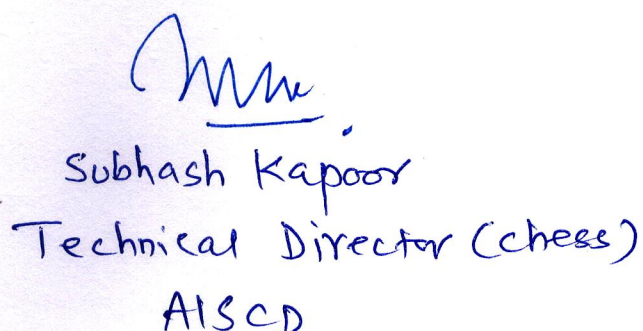 Subhash Kapoor
Technical Director (chess)
AISCD